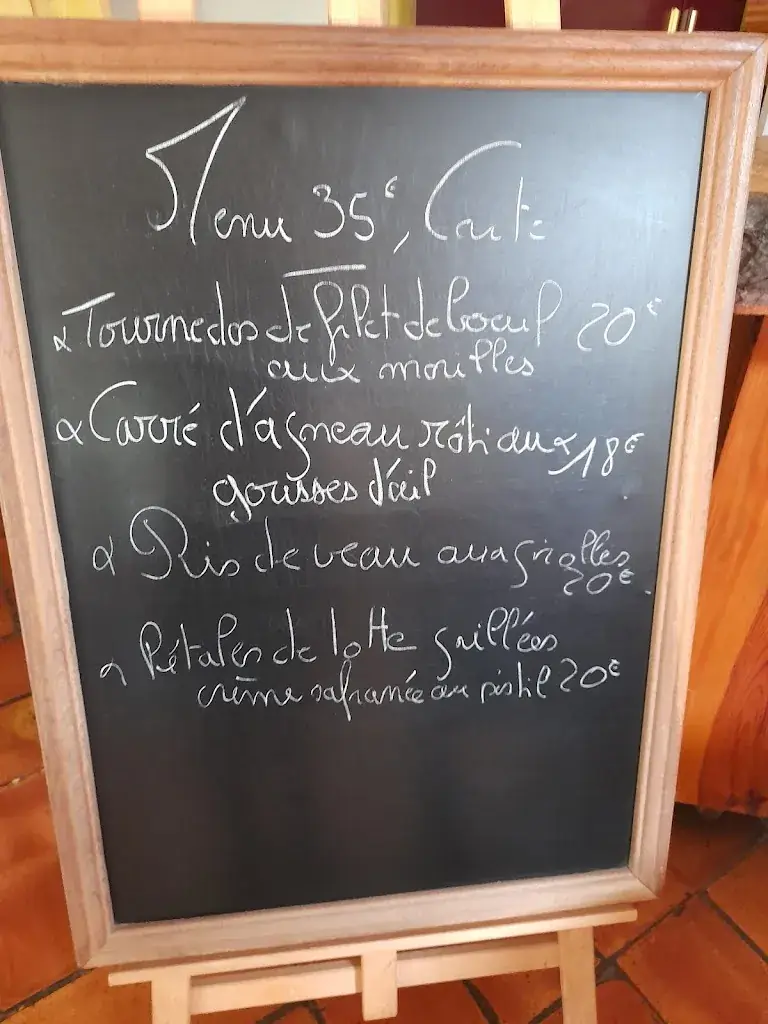 Menu 35€, Carte
Tournedos de filet de boeuf 20€
aux morilles
Carré d'agneau rôti aux 18€
gousses d'ail
Ris de veau aux girolles
20€
Pétales de lotte grillées
crème safranée au pistil 20€